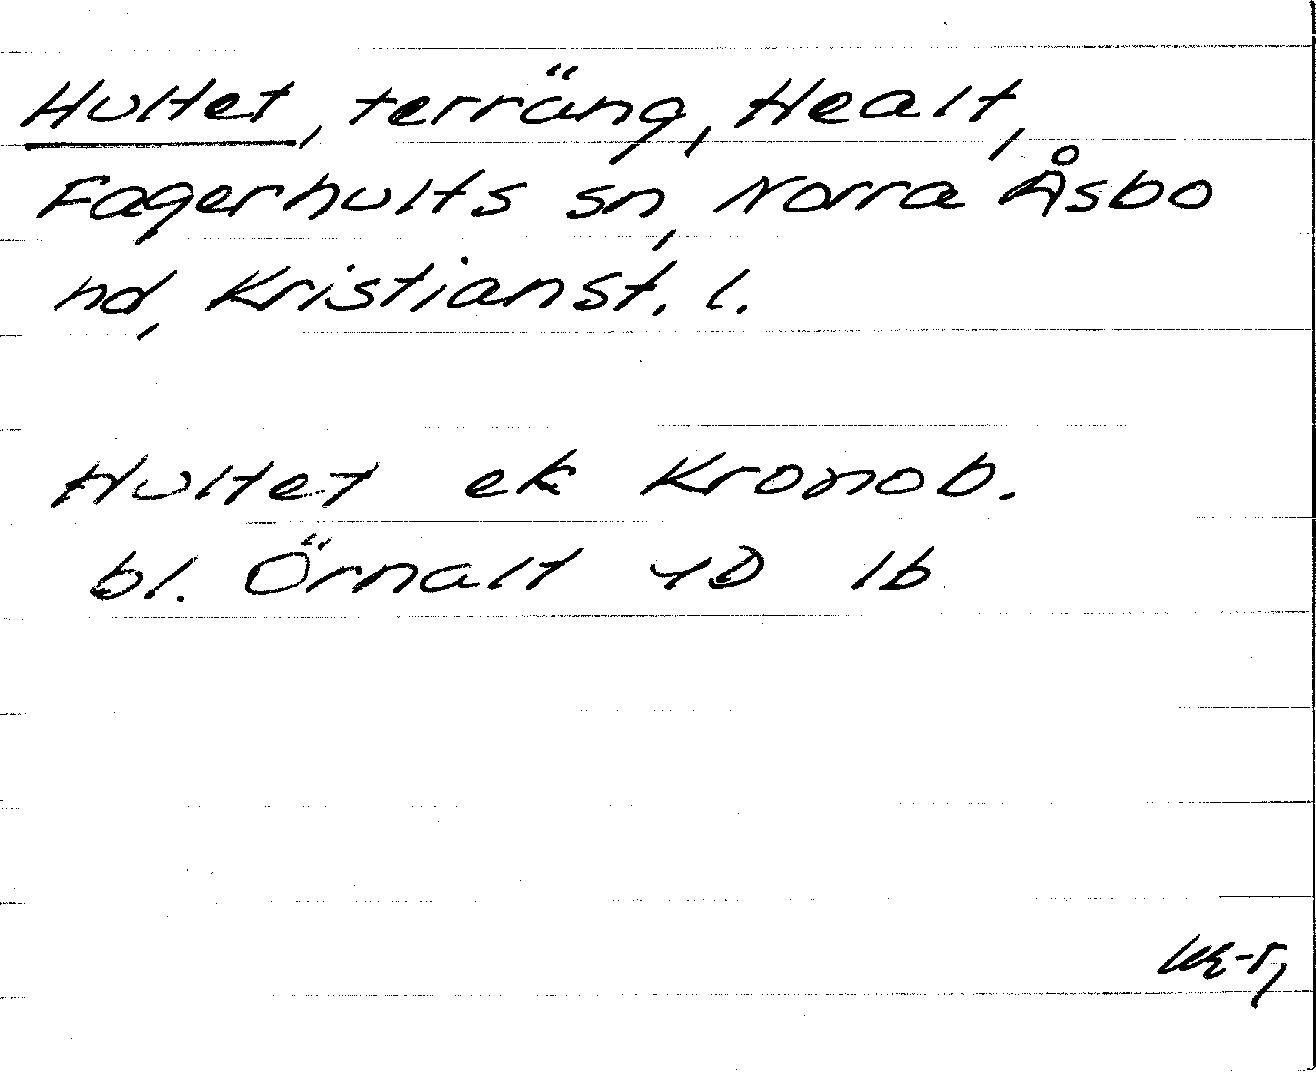 Hultet, terräng, Healt,
Fagerhults sn, Norra Åsbo
hd, Kristianst. l.
Hultet ek Kronob.
bl. Örnalt 4D 1b